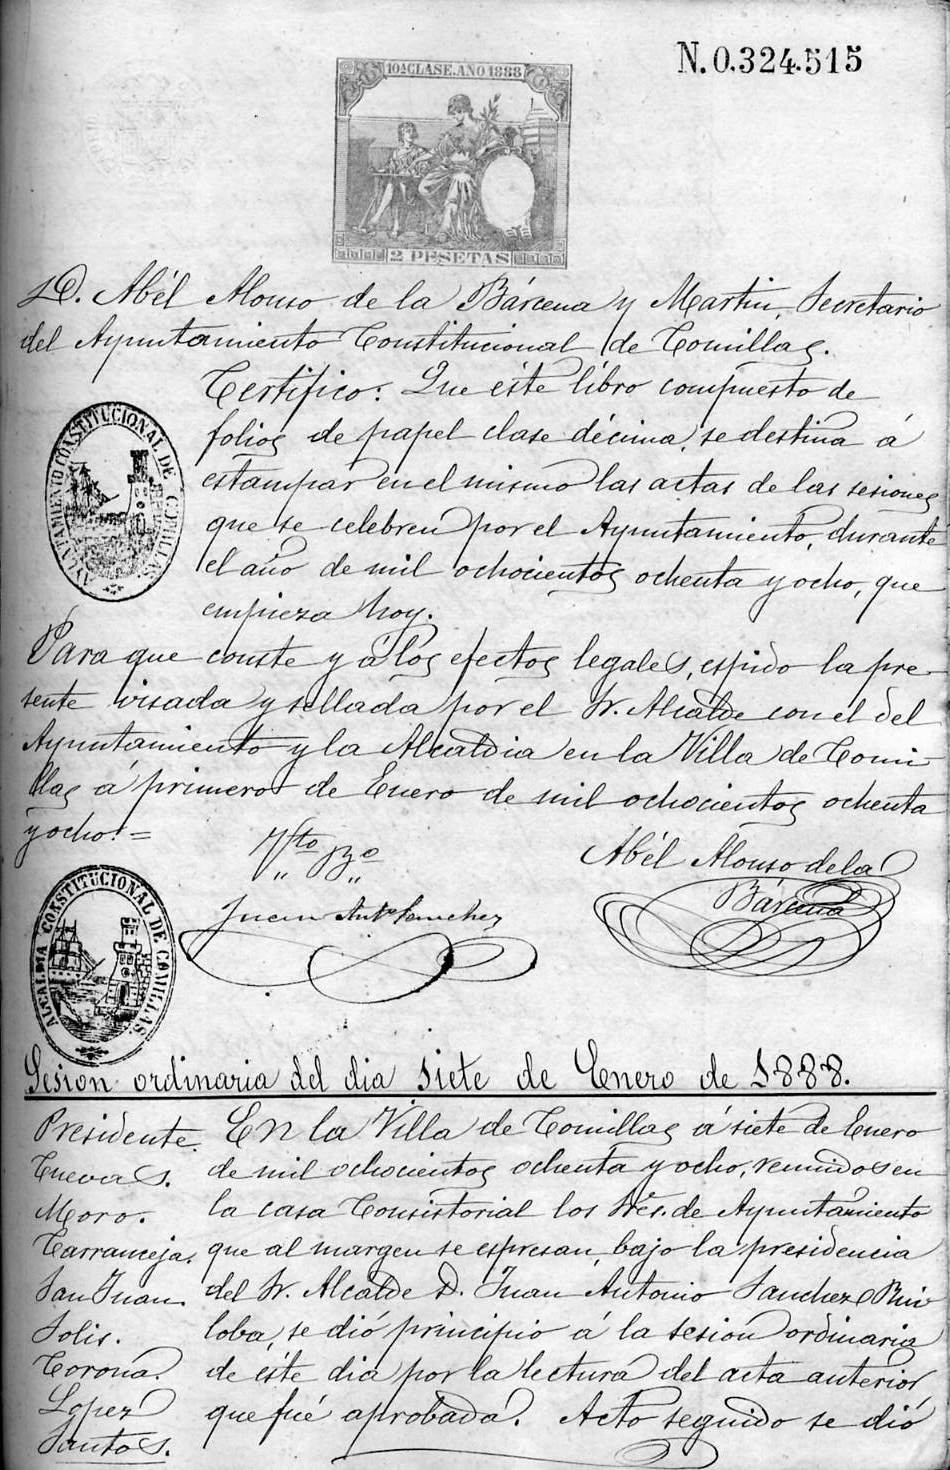 N.0.324.515
10ª CLASE. AÑO 1888
2 PESETAS
D. Abél Alonso de la Bárcena y Martin, Secretario
del Ayuntamiento Constitucional de Comillas.
Certifico: Que éste libro compuesto de
folios de papel clase décima, se destina á
estampar en el mismo las actas de las sesiones
que se celebren por el Ayuntamiento, durante
el año de mil ochocientos ochenta y ocho, que
empieza hoy.
AYUNTAMIENTO CONSTITUCIONAL DE COMILLAS.
Para que conste y á los efectos legales, espido la pre-
sente visada y sellada por el Sr. Alcalde con el del
Ayuntamiento y la Alcaldia en la Villa de Comi-
llas á primero de Enero de mil ochocientos ochenta
y ocho. =
Vto Bo
Abél Alonso de la
Bárcena
Juan Anto Sanchez
ALCALDIA CONSTITUCIONAL DE COMILLAS.
Sesion ordinaria del dia siete de Enero de 1888.
Presidente
Cuevas.
Moro.
Tarranceja.
San Juan.
Solis.
Corona.
Lopez
Santos.
En la Villa de Comillas á siete de Enero
de mil ochocientos ochenta y ocho, reunidos en
la casa Consistorial los Sres. de Ayuntamiento
que al margen se espresan, bajo la presidencia
del Sr. Alcalde D. Juan Antonio Sanchez Rui
loba, se dió principio á la sesion ordinaria
de éste dia por la lectura del acta anterior
que fué aprobada. Acto seguido se dió